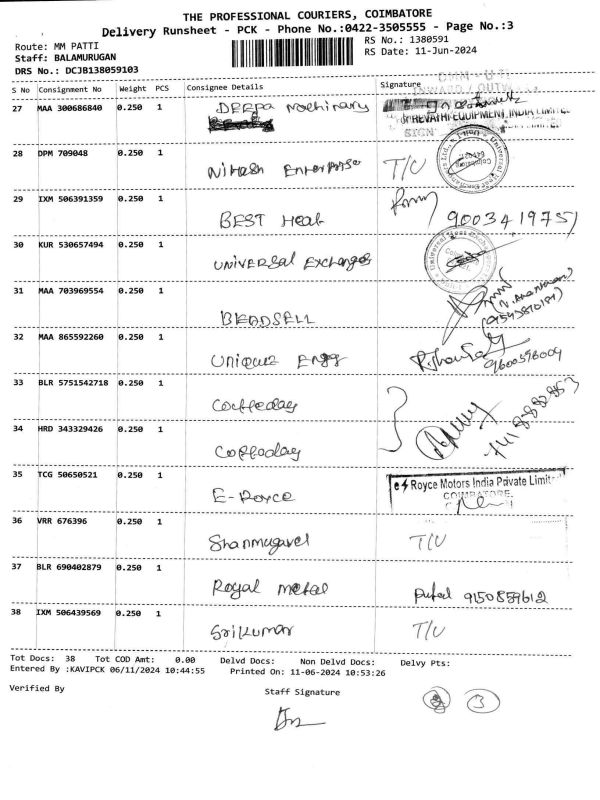 THE PROFESSIONAL COURIERS, COIMBATORE
Delivery Runsheet - PCK - Phone No.:0422-3505555 - Page No.:3
Route: MM PATTI
RS No.: 1380591
Staff: BALAMURUGAN
RS Date: 11-Jun-2024
DRS No.: DCJB138059103
S No Consignment No Weight PCS Consignee Details Signature
27 MAA 300686840 0.250 1 DEEPA Machinary
REVATHI EQUIPMENT INDIA LIMITED
SIGN
28 DPM 709048 0.250 1 Nimesh Enterprise T/U
29 IXM 506391359 0.250 1 BEST Heat 9003419751
30 KUR 530657494 0.250 1 UNIVERSAL Exchanges
31 MAA 703969554 0.250 1 BEADSELL
32 MAA 865592260 0.250 1 UNIQUE Engg 9600398009
33 BLR 5751542718 0.250 1 Coffeeday
34 HRD 343329426 0.250 1 Coffeeday
35 TCG 50650521 0.250 1 E-Royce
Royce Motors India Private Limit
COIMBATORE.
36 VRR 676396 0.250 1 Shanmugavel T/U
37 BLR 690402879 0.250 1 Royal metal 9150859612
38 IXM 506439569 0.250 1 Srikumar T/U
Tot Docs: 38 Tot COD Amt: 0.00 Delvd Docs: Non Delvd Docs: Delvy Pts:
Entered By :KAVIPCK 06/11/2024 10:44:55 Printed On: 11-06-2024 10:53:26
Verified By Staff Signature
3